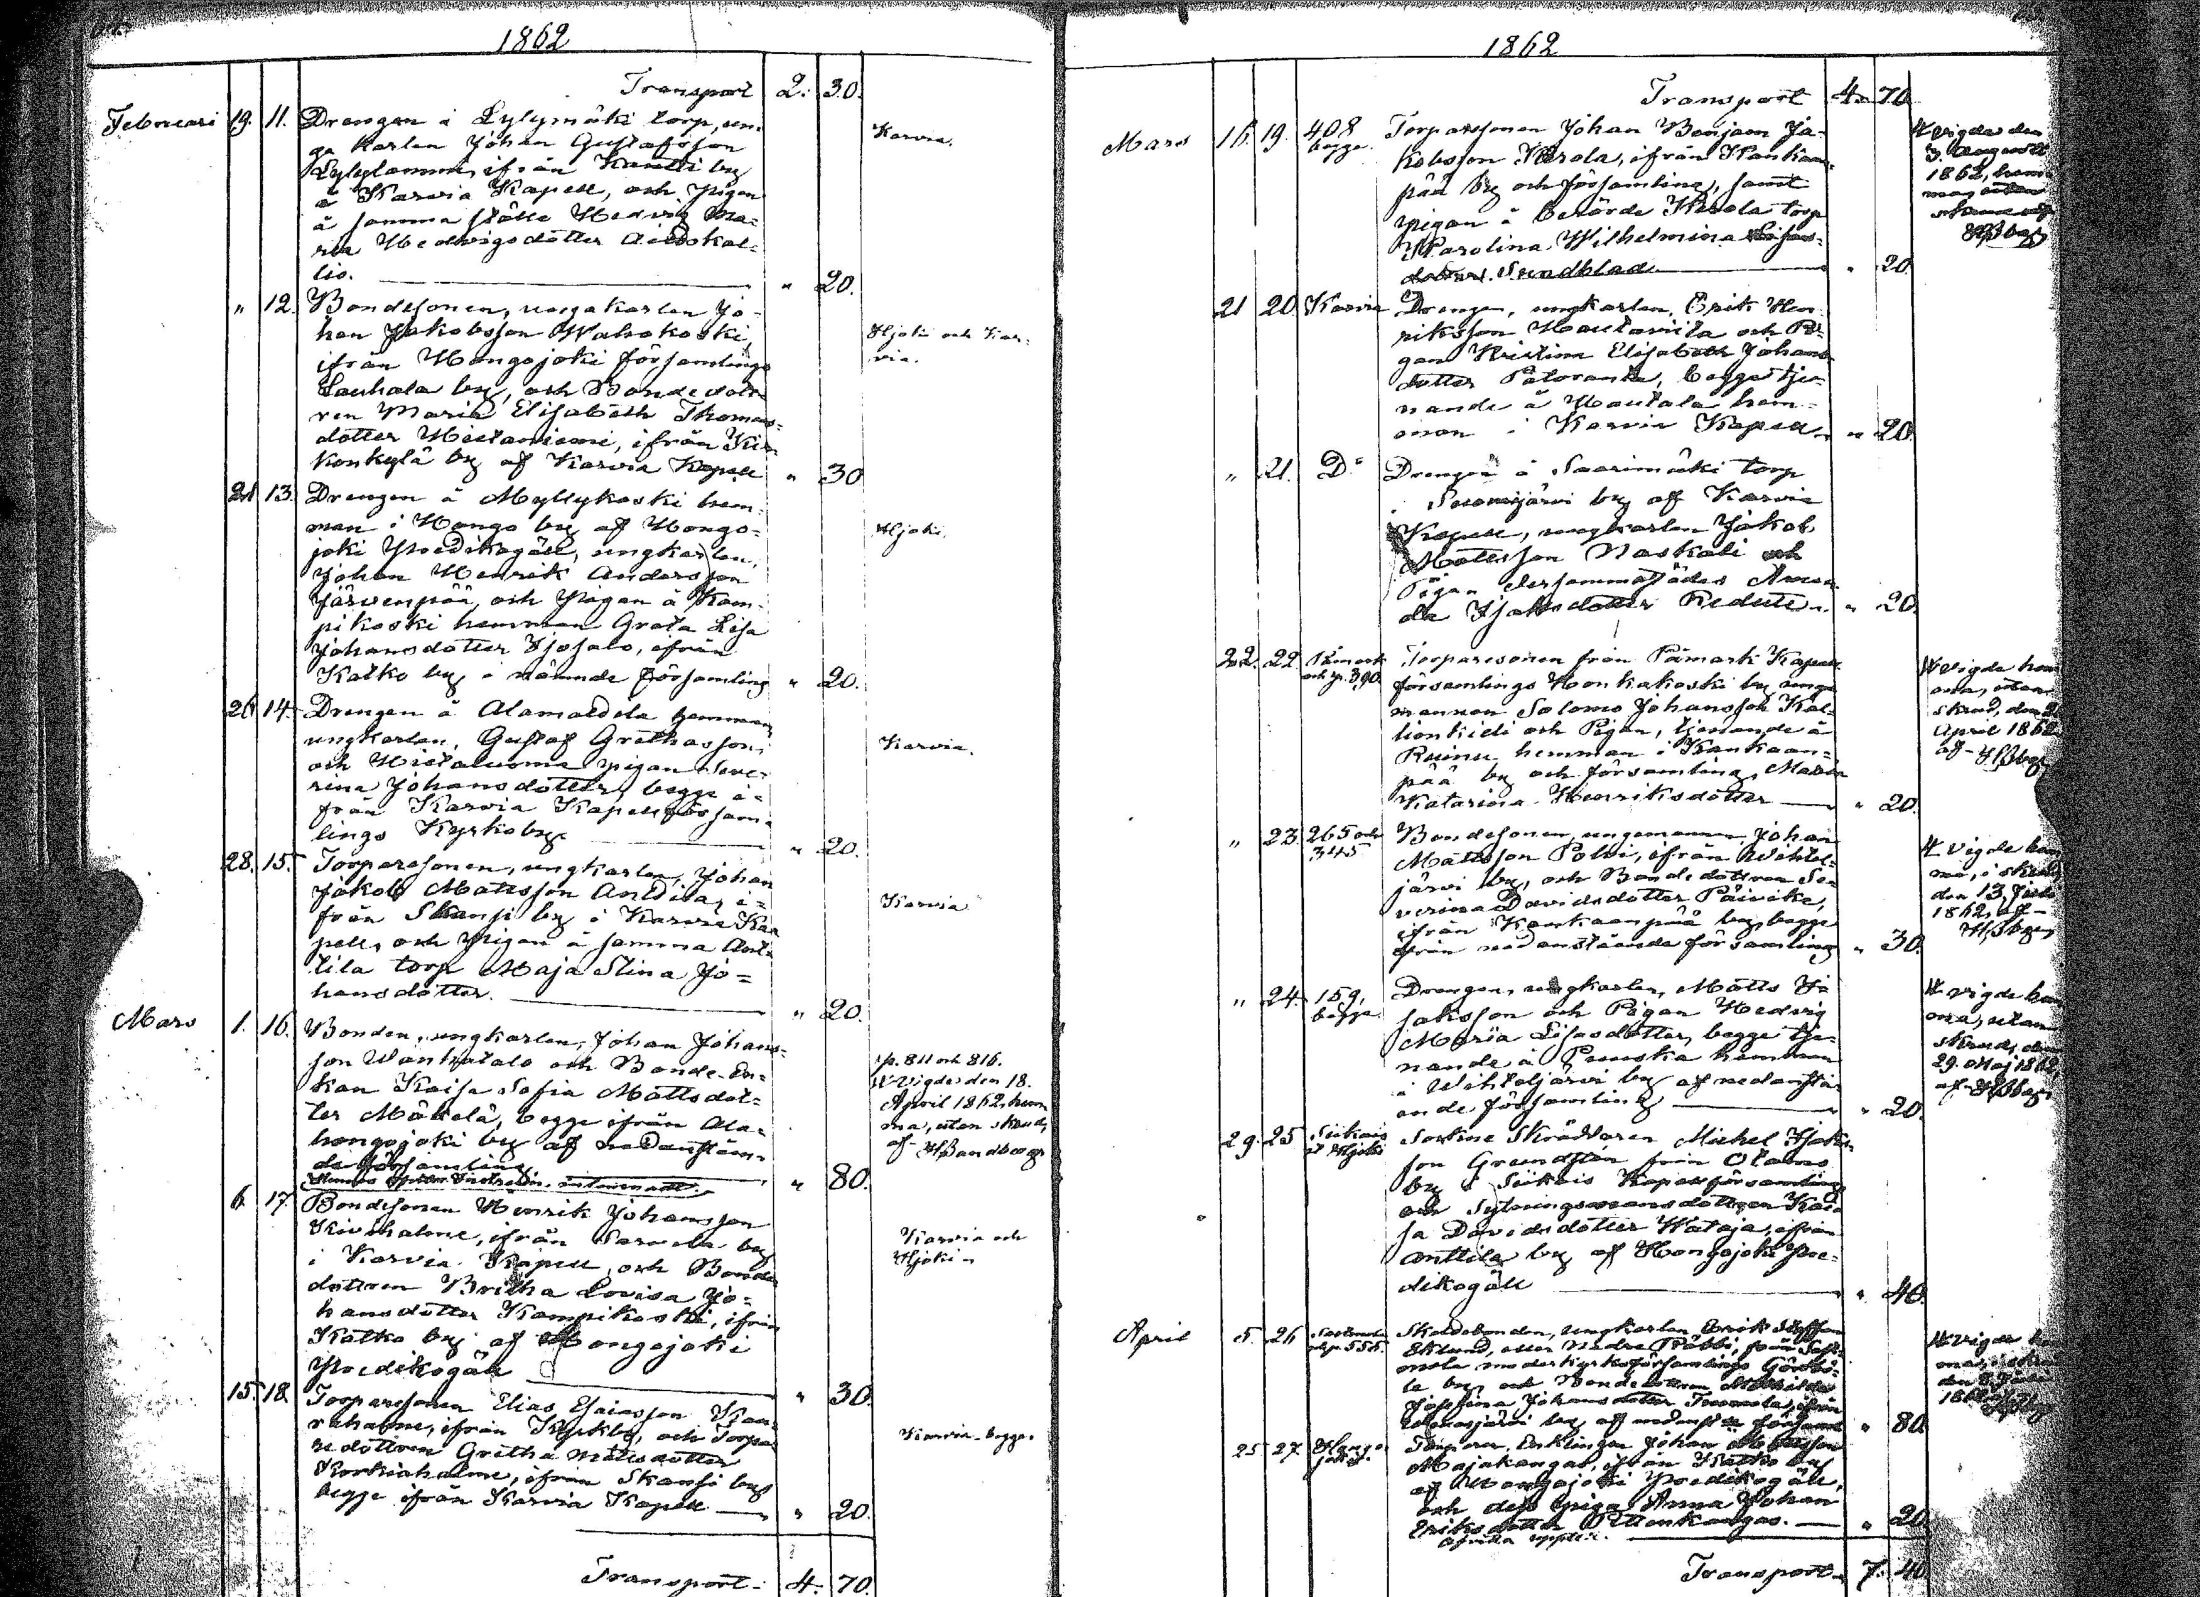 1862
Transport 2. 30.
Februari 19. 11. Drengen å Lylymäki torp, un-
ga karlen Johan Gustafsson
Lylylammi, ifrån Kantti by
i Karvia Kapell, och pigan
å samma ställe Hedvig Ma-
ria Hedvigsdotter
lio. " 20.
Karvia.
" 12. Bondesonen, unga karlen Jo-
han Jakobsson Wahokoski,
ifrån Hongojoki församlings
Lauhala by, och Bondedott-
ren Maria Elisabeth Thomas-
dotter Hietaniemi, ifrån Kir-
konkylä by af Karvia Kapell " 30
Hjoki och Kar-
via.
21 13. Drengen å Myllykoski hem-
man i Hongo by af Hongo-
joki Predikogäll, ungkarlen,
Johan Henrik Andersson
Järvenpää, och Pigan å Kam-
pikoski hemman Greta Lisa
Johansdotter Isosalo, ifrån
Katko by i nämnde församling " 20.
Hjoki.
26 14. Drengen å Alamaldela hemman
ungkarlen, Gustaf Grethasson,
och Hietaluoma pigan Seve-
rina Johansdotter, begge i-
från Karvia Kapellförsam-
lings Kyrkoby. " 20.
Karvia.
28. 15. Torparesonen, ungkarlen, Johan
Jakob Mattsson Anttila, i-
från Skansi by i Karvia Ka-
pell, och Pigan å samma Ant-
tila torp Maja Stina Jo-
hansdotter. " 20.
Karvia
Mars 1. 16. Bonden, ungkarlen, Johan Johans-
son Wanhatalo och Bonde-En-
kan Kaisa Sofia Mattsdot-
ter Mäkelä, begge ifrån Ala-
hongojoki by af nedanståen-
de församling. " 80.
p. 811 och 816.
Vigdes den 18.
April 1862, hem-
ma, utan skrud,
af HSandberg
6. 17. Bondesonen Henrik Johansson
Kiviholme, ifrån Sarvela by
i Karvia Kapell, och Bonde
dottren Britha Lovisa Jo-
hansdotter Kampikoski, ifrån
Katko by af Hongojoki
Predikogäll " 30.
Karvia och
Hjoki
15. 18. Torparesonen Elias Esaiasson
ifrån Kyrkby, och Torpa-
redottren Gretha Mattsdotter
Korkiaholme, ifrån Skansi by
begge ifrån Karvia Kapell " 20.
Karvia begge.
Transport 4. 70.
1862
Transport 4. 70.
Mars 16. 19. 408 begge. Torparesonen Johan Benjam Ja-
kobsson Kerola, ifrån Kankaan-
pää by och församling, samt
pigan å berörde Kerola torp
Karolina Wilhelmina
Sundblad " 20.
Vigdes den
3. Augusti
1862, hem-
ma, utan
21 20. Karvia Drengen, ungkarlen, Erik Hen-
riksson Hautaviita och Pi-
gan Kristina Elisabeth Johans-
dotter Patoranta, begge tje-
nande å Hautala hem-
man i Karvia Kapell " 20.
" 21. D:o Drengen å Saarimäki torp
Suomijärvi by af Karvia
Kapell, ungkarlen Jakob
Mattsson Naskali och
Pigan dersammastädes Aman-
da Isaksdotter " 20.
22. 22. Påmark och p. 390. Torparesonen från Påmark Kapell
församlings Honkakoski by, unge
mannen Salomo Johansson Kal-
lionkieli och Pigan, tjenande å
Ruinu hemman i Kankaan-
pää by och församling, Maria
Katarina Henriksdotter " 20.
Vigde hem-
ma, utan
skrud, den
April 1862
af
" 23. 265 och 345 Bondesonen, ungemannen Johan
Mattsson Polvi, ifrån Wihtel-
järvi by, och Bondedottren Se-
verina Davidsdotter Päivike,
ifrån Kankaanpää by, begge
från nedanstående församling " 30.
Vigde hem-
ma, i skrud,
den 13. Juli
1862, af
" 24. 159, begge Drengen, ungkarlen, Matts I-
saksson och Pigan Hedvig
Maria Lisasdotter, begge tje-
nande å Pruuska hemman
i Wihteljärvi by af nedanstå-
ende församling " 20.
Vigde hem-
ma, utan
skrud, den
29. Maj 1862,
29. 25 Siikais och Hjoki Sockne Skräddaren Michel Isaks-
son Grundstén från Otamo
by i Siikais Kapellförsamling
och Sytningsmansdottren Kai-
sa Davidsdotter Hataja, ifrån
Anttila by af Hongojoki Pre-
dikogäll " 40.
April 5. 26 Sastmola och p. 555. Skattebonden, ungkarlen Erik
Eklund, eller Nedre Präbbi, från Sast-
mola moderkyrkoförsamlings
by, och Bondedottren Mathilda
Josefina Johansdotter
by af församling " 80.
Vigde hem-
25 27. Hongo-
joki. Enklingen Johan Mattsson
Majakangas, ifrån Katko by
af Hongojoki Predikogäll,
och dess piga Anna Johan
Eriksdotter Pettenkangas. " 20
Transport 7. 40.